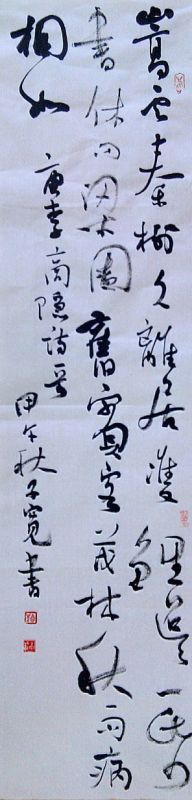 嵩雲秦樹久離居雙鯉迢迢一紙
書休問梁園舊賓客茂林秋雨病
相如
唐李商隱詩一首
甲午秋子寬書